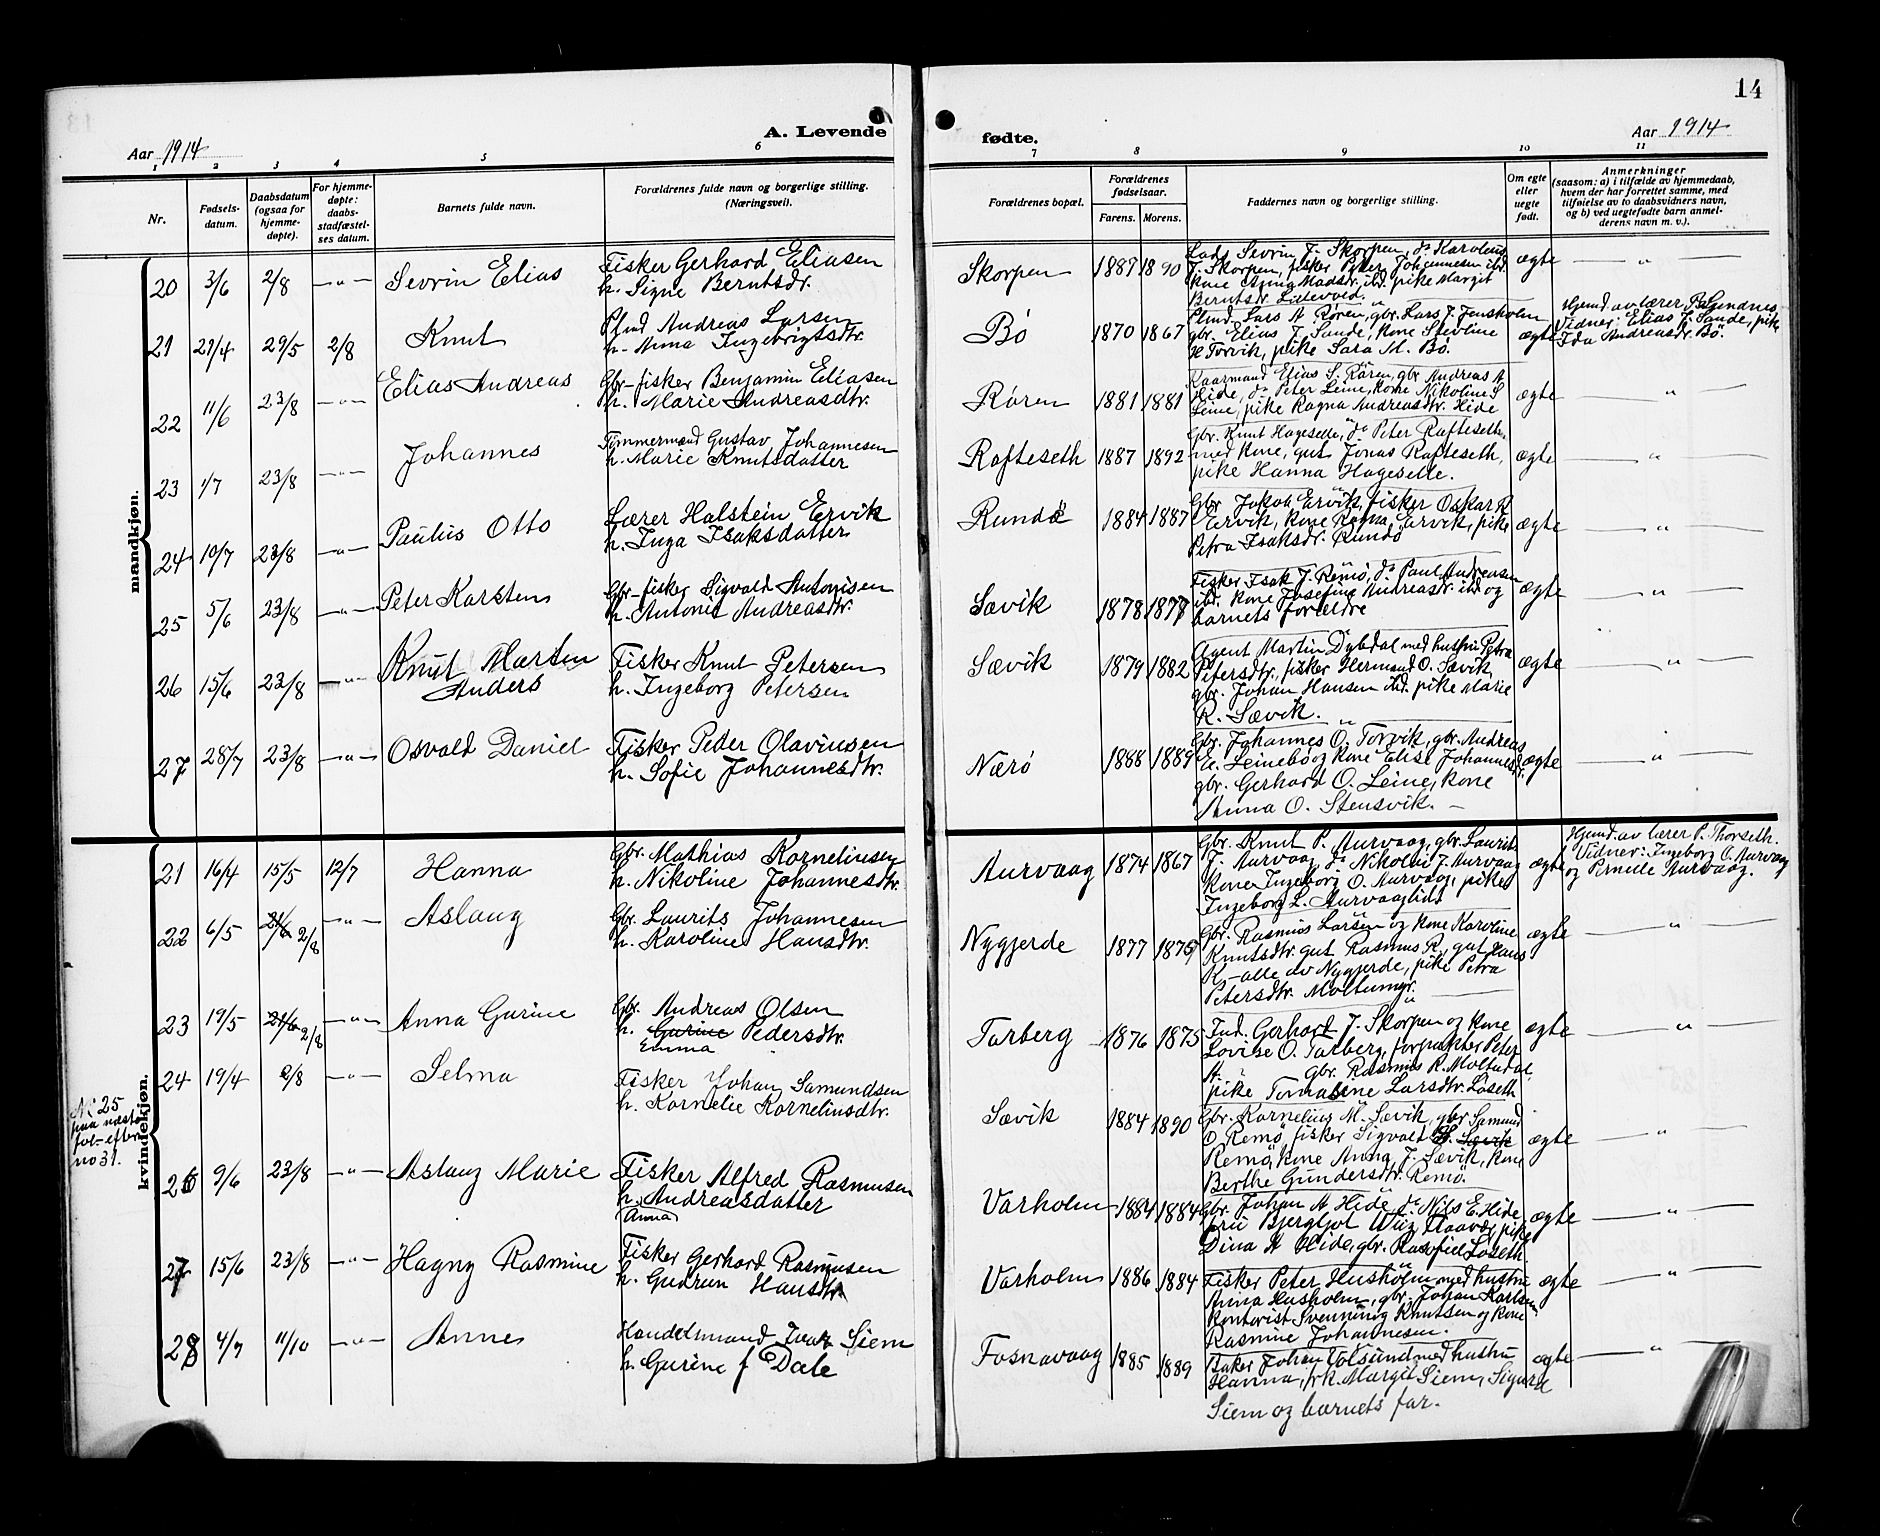 14
A. Levende
fødte.
Aar 1914
Aar 1914
1 2 3 4 5 6 7 8 9 10 11
Nr.
Fødsels-
datum.
Daabsdatum
(ogsaa for
hjemme-
døpte).
For hjemme-
døpte:
daabs-
stadfæstel-
ses datum.
Barnets fulde navn.
Forældrenes fulde navn og borgerlige stilling.
(Næringsvei).
Forældrenes bopæl.
Forældrenes
fødselsaar.
Farens. Morens.
Faddernes navn og borgerlige stilling.
Om egte
eller
uegte
født.
Anmerkninger
(saasom: a) i tilfælde av hjemmedaab,
hvem der har forrettet samme, med
tilføielse av to daabsvidners navn,
og b) ved uegtefødte barn anmel-
derens navn m. v.).
mandkjøn.
20 3/6 2/8 —"— Sevrin Elias
Fisker Gerhard Eliasen
h. Signe Berntsdr.
Skorpen 1887 1890
Ladr Sevrin J. Skorpen, do Karoline
J. Skorpen, fisker Peter Johannesen ibd.
kone Madsdr. ibd. pike Margit
Berntsdr.
ægte —"—
21 21/4 29/5 2/8 Knut
Andreas Larsen
h. Anna Ingebrigtsdtr.
Bø 1870 1867
Lars A Røren, gbr. Lars J. Jensholm
gbr. Elias J. Sande, kone Stevline
K Torvik, pike Sara M. Bø.
ægte
Hjemd. av lærer P. Gjendnes
Vidner: Elias J. Sande, pike
Ida Andreasdr. Bø.
22 11/6 23/8 —"— Elias Andreas
Gbr-fisker Benjamin Eliasen
h. Marie Andreasdtr.
Røren 1881 1881
Kaarmand Elias S. Røren, gbr Andreas A
Hide, do Peter Leine, kone Nikoline S
Leine, pike Ragna Andreasdtr. Hide
ægte —"—
23 1/7 23/8 —"— Johannes
Tømmermand Gustav Johannesen
h. Marie Knutsdatter
Rafteseth 1887 1892
Gbr. Knut Hageselle, do Peter Rafteseth
med kone, gut Jonas Rafteseth,
pike Hanna Hageselle.
ægte —"—
24 10/7 23/8 —"— Paulus Otto
Lærer Halstein Ervik
h. Inga Isaksdatter
Rundø 1884 1887
Gbr Jakob Ervik, fisker Oskar K
Ervik, kone Ervik, pike
Petra Isaksdr. Rundø
ægte —"—
25 5/6 23/8 —"— Peter Karsten
Gbr-fisker Sigvald Antonisen
h. Antonie Andreasdtr.
Sævik 1878 1878
Fisker Isak J. Remø, do Paul Andreasen
ibd. kone Josefine Andreasdr. ibd og
barnets forældre
ægte —"—
26 15/6 23/8 —"— Knut Marten
Anders
Fisker Knut Petersen
h. Ingeborg Petersen
Sævik 1879 1882
Agent Martin Dybdal med hustru Petra
Petersdtr., fisker Hermand O. Sævik,
gbr. Johan Hansen ibd. pike Marie
R. Sævik.
ægte —"—
27 28/7 23/8 —"— Osvald Daniel
Fisker Peder Olavinsen
h. Sofie Johannesdtr.
Nærø 1888 1889
Gbr. Johannes O. Torvik, gbr. Andreas
E. Leinebø og kone Elise Johannesdr.
gbr. Gerhard O. Leine, kone
Anna O. Stensvik.
ægte —"—
kvindekjøn.
21 16/4 15/5 12/7 Hanna
Gbr. Mathias Korneliusen
h. Nikoline Johannesdtr.
Aurvaag 1874 1867
Gbr. Knut P. Aurvaag, gbr. Laurits
J. Aurvaag, do Nikolai J. Aurvaag
kone Ingeborg O. Aurvaag, pike
Ingeborg L. Aurvaaglid
ægte
Hjemd. av lærer P. Thorseth.
Vidner: Ingeborg O. Aurvaag
og Pernille Aurvaag.
22 6/5 21/6 2/8 —"— Aslaug
Gbr. Laurits Johannesen
h. Karoline Hansdtr.
Nygjerde 1877 1875
Gbr. Rasmus Larsen og kone Karoline
Knutsdtr. gut Rasmus R, gut Hans
K,-alle av Nygjerde, pike Petra
Petersdtr. Moltumyr.
ægte —"—
23 19/5 21/6 2/8 —"— Anna Gurine
Gbr. Andreas Olsen
h. Gurine Pedersdtr.
Emma
Tarberg 1876 1875
Ind. Gerhard J. Skorpen og kone
Lovise O. Tarberg, forpakter Peter
A. " gbr. Rasmus R. Moltudal,
pike Tomasine Larsdtr. Løseth
ægte —"—
24 19/4 2/8 —"— Selma
Fisker Johan Samundsen
h. Kornelie Korneliusdtr.
Sævik 1884 1890
Gbr. Kornelius M. Sævik, gbr Samund
O. Remø, fisker Sigvald Sævik
Remø, kone Anna J. Sævik, kone
Berthe Gundersdtr. Remø.
ægte —"—
No 25
paa næste
fol- efter
no 31.
26 9/6 23/8 —"— Aslaug Marie
Fisker Alfred Rasmusen
h. Andreasdatter
Anna
Varholm 1884 1884
Gbr. Johan A Hide, do Nils E. Hide
Bjergljot
Dina A Hide, gbr. Løseth.
ægte —"—
27 15/6 23/8 —"— Hagny Rasmine
Fisker Gerhard Rasmusen
h. Gudrun Hansdtr
Varholm 1886 1884
Fisker Peter Husholm med hustru
Anna Husholm, gbr. Johan Karlsen
Kontorist Svenning Knutsen og kone
Rasmine Johannesen.
ægte —"—
28 4/7 11/10 —"— Anne
Handelsmand Ivar Siem
h. Gurine f Dale
Fosnavaag 1885 1889
Baker Johan Volsund med hustru
Hanna, frk. Margit Siem, Sigurd
Siem og barnets far.
ægte —"—